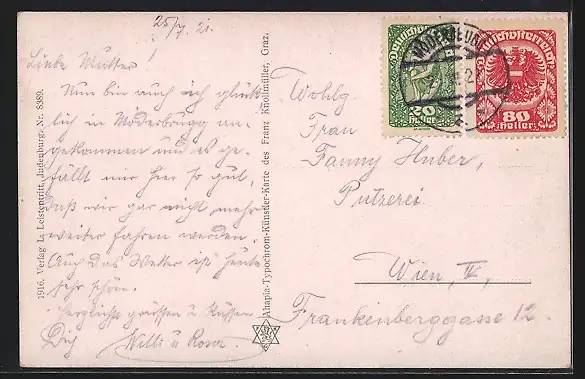 25/7. 21.
Liebe Mutter!
Nun bin auch ich glück-
lich in Möderbrugg an-
gekommen und es ge-
fällt mir hier so gut,
daß wir gar nicht mehr
weiter fahren werden.
Auch das Wetter ist heute
sehr schön.
Herzlichst grüssen u Küssen
Dich Willi u Rosa.
1916. Verlag L. Leistentritt, Judenburg. Nr. 8389.
Ahapia-Typochrom-Künstler-Karte des Franz Knollmüller, Graz.
Deutschösterreich
20
Heller
Deutschösterreich
80
Heller
Wohlg.
Frau
Fanny Huber,
Putzerei
Wien, IV,
Frankenberggasse 12.